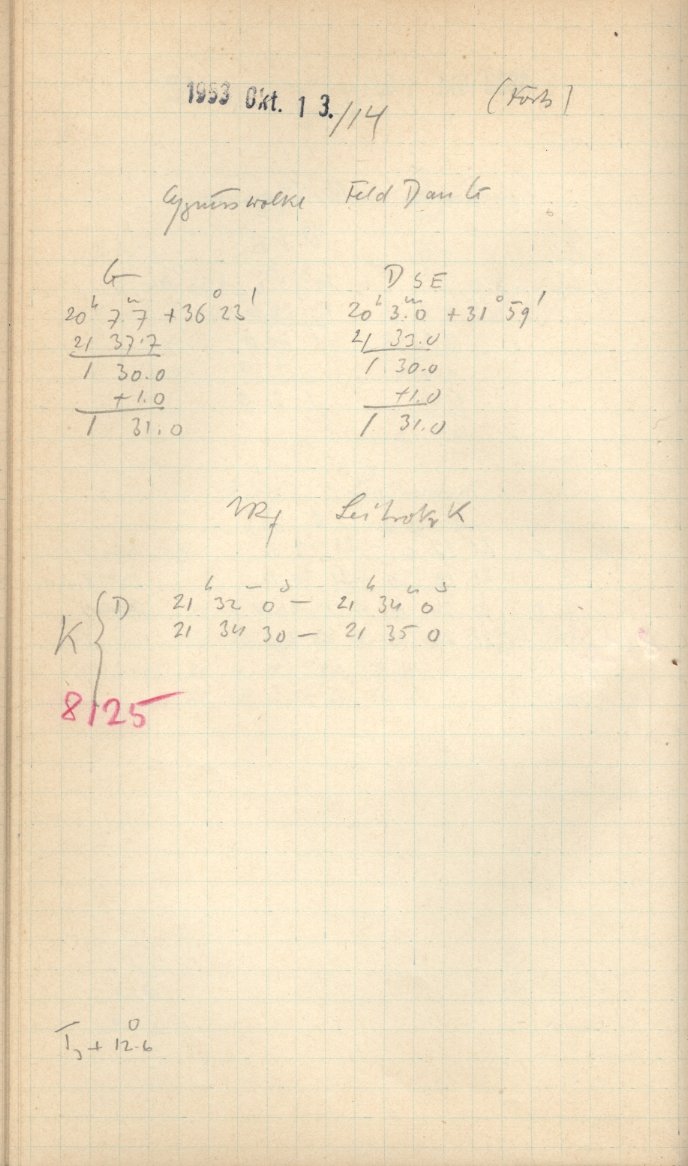 1953 Okt. 13./14 (Forts)
Cygnuswolke Feld D an G
G
20ʰ 7ᵐ.7 +36° 23'
21 37.7
1 30.0
+1.0
1 31.0
D SE
20ʰ 3ᵐ.0 +31° 59'
21 33.0
1 30.0
+1.0
1 31.0
K
K { D 21ʰ 32ᵐ 0ˢ – 21ʰ 34ᵐ 0ˢ
21 34 30 – 21 35 0
8125
+ 12.6°